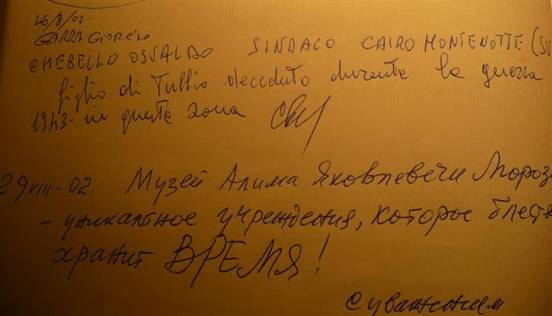 26/8/02
GARRA GIORGIO
CHEBELLO OSVALDO SINDACO CAIRO MONTENOTTE (SV
figlio di Tullio deceduto durante la guerra
1943- in queste zona
29 VIII-02. Музей Алима Яковлевича Мороз
- уникальное учреждения, которое блестя
хранит ВРЕМЯ!
С уважением